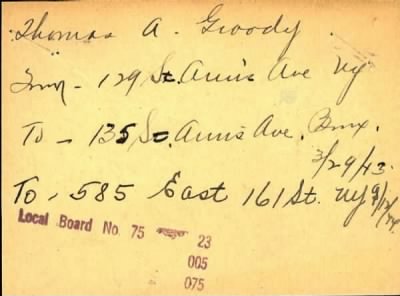 Thomas A. Groody.
From - 129 St. Ann's Ave Ny
To - 135 St. Ann's Ave. Bnx.
3/29/43.
To - 585 East 161 St. Ny 9/12/44
Local Board No. 75 23
005
075